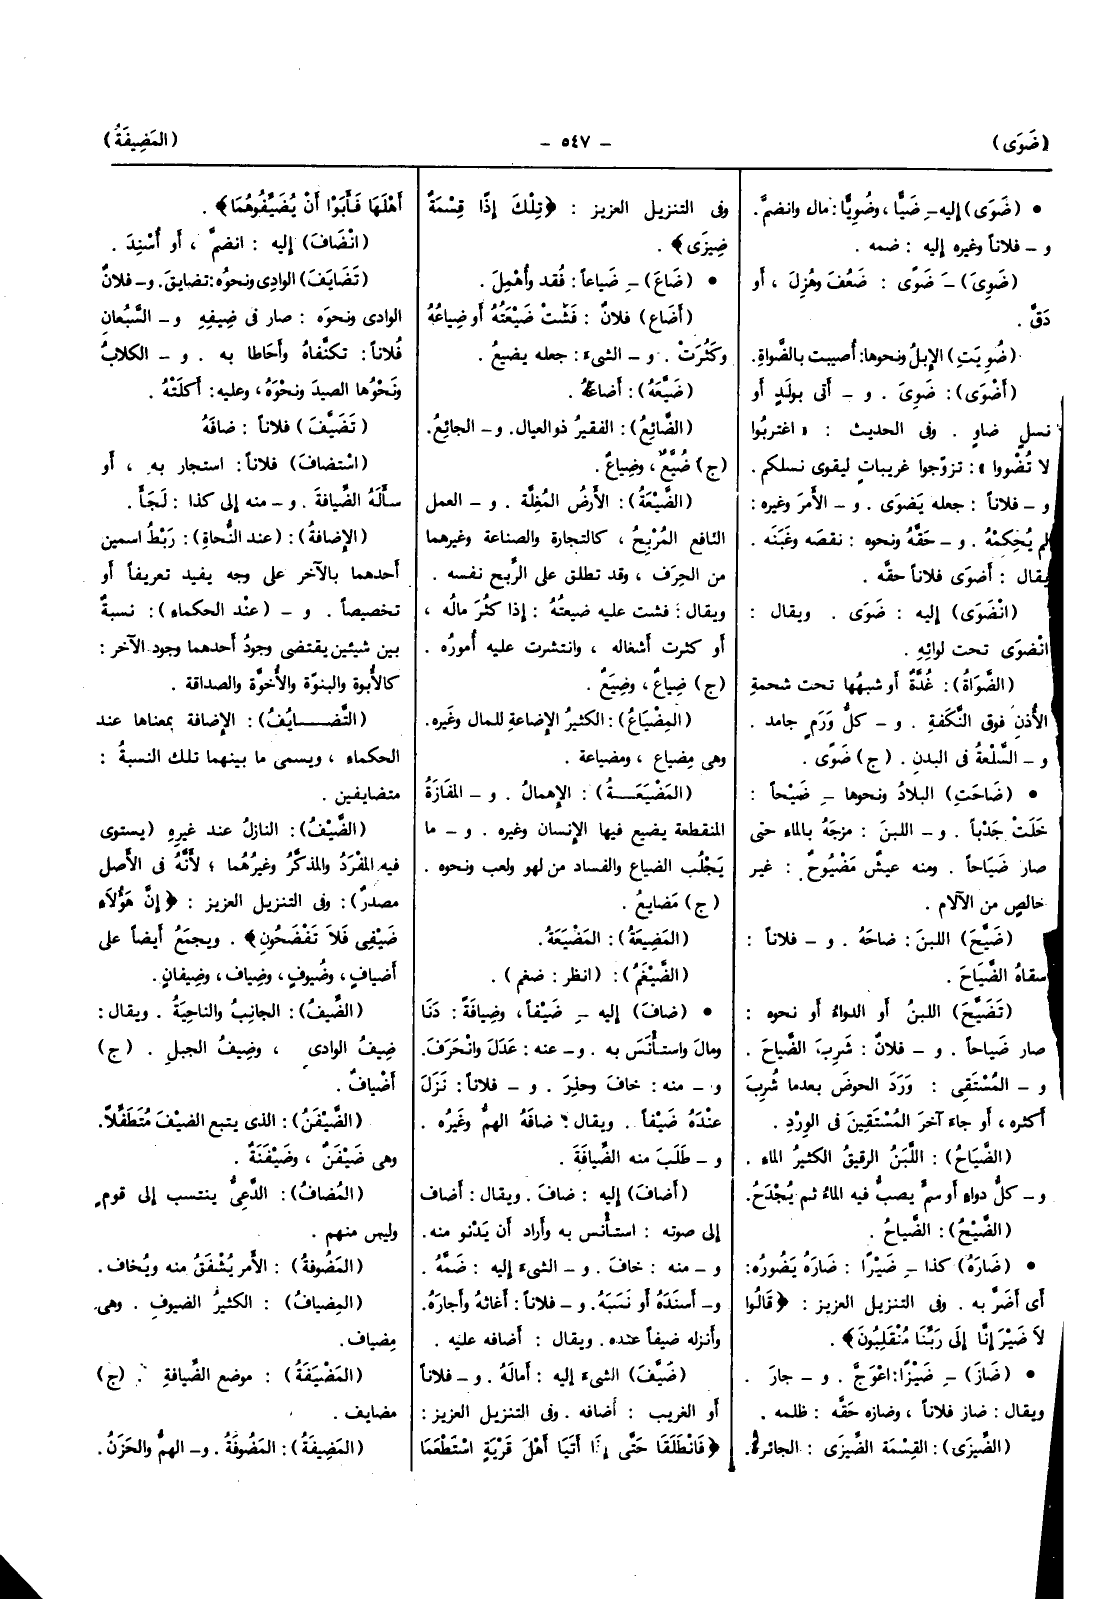 (ضَوَى)
— ٥٤٧ —
(المَضِيفَةُ)
• (ضَوَى) إليه ـِ ضَيًّا ، وضُوِيًّا : مال وانضمَّ .
و — فلاناً وغيره إليه : ضمه .
(ضَوِىَ) ـَ ضَوًى : ضَعُفَ وهُزِلَ ، أو
دَقَّ .
(ضُوِيَتِ) الإبلُ ونحوها: أُصيبت بالضَّواةِ.
(أَضْوَى) : ضَوِىَ . و — أتى بولَدٍ أو
نسلٍ ضاوٍ . وفى الحديث : « اغتربُوا
لا تُضْووا » : تزوّجوا غريباتٍ ليقوى نسلكم .
و — فلاناً : جعله يَضوَى . و — الأمرَ وغيره :
لم يُحكِمْهُ . و — حقَّهُ ونحوه : نقصَه وغَبَنَه .
يقال : أضوَى فلاناً حقَّه .
(انْضَوَى) إليه : ضَوَى . ويقال :
انْضوَى تحت لوائِهِ .
(الضَّوَاةُ) : غُدَّةٌ أو شبهُها تحت شحمةِ
الأُذنِ فوق النَّكَفةِ . و — كلُّ وَرَمٍ جامد .
و — السِّلْعةُ فى البدنِ . (ج) ضَوًى .
• (ضَاحَتِ) البلادُ ونحوها ـِ ضَيْحاً :
خَلَتْ جَدْباً . و — اللبنَ : مزجَهُ بالماء حتى
صار ضَيَاحاً . ومنه عيشٌ مَضْيُوحٌ : غير
خالصٍ من الآلام .
(ضَيَّحَ) اللبنَ : ضاحَهُ . و — فلاناً :
سقاهُ الضَّيَاحَ .
(تَضَيَّحَ) اللبنُ أو الدواءُ أو نحوه :
صار ضَياحاً . و — فلانٌ : شَرِبَ الضَّياحَ .
و — المُسْتَقِى : وَرَدَ الحوضَ بعدما شُرِبَ
أكثره ، أو جاء آخرَ المُسْتَقِينَ فى الوِرْدِ .
(الضَّيَاحُ) : اللَّبَنُ الرقيقُ الكثيرُ الماء .
و — كلُّ دواءٍ أو سمٍّ يصبُّ فيه الماءُ ثم يُجْدَحُ .
(الضَّيْحُ) : الضَّياحُ .
• (ضَارَهُ) كذا ـِ ضَيْرًا : ضَارَهُ يَضُورُه:
أى أضَرَّ به . وفى التنزيل العزيز : ﴿ قَالُوا
لاَ ضَيْرَ إِنَّا إِلَى رَبِّنَا مُنْقَلِبُونَ﴾ .
• (ضَازَ) ـِ ضَيْزًا : اعْوَجَّ . و — جارَ .
ويقال : ضاز فلاناً ، وضازه حَقَّه : ظلمه .
(الضِّيزَى) : القِسْمَة الضِّيزَى : الجائرةُ.
وفى التنزيل العزيز : ﴿تِلْكَ إِذًا قِسْمَةٌ
ضِيزَى﴾ .
• (ضَاعَ) ـِ ضَياعاً : فُقد وأُهْمِلَ .
(أَضَاع) فلانٌ : فَشَتْ ضَيْعَتُهُ أو ضِياعُهُ
وكَثُرَتْ . و — الشىءَ : جعله يضيعُ .
(ضَيَّعَهُ) : أضاعَهُ .
(الضَّائِعُ) : الفقيرُ ذو العيال. و — الجائعُ.
(ج) ضُيَّعٌ ، وضِياعٌ.
(الضَّيْعَةُ) : الأَرضُ المُغِلَّة . و — العمل
النافع المُرْبِحُ ، كالتجارة والصناعة وغيرهما
من الحِرَف ، وقد تطلق على الرِّبح نفسه .
ويقال : فشت عليه ضيعتُهُ : إذا كثُرَ مالُه ،
أو كثرت أشغاله ، وانتشرت عليه أمورُه .
(ج) ضِياعٌ ، وضِيَعٌ .
(المِضْيَاعُ) : الكثيرُ الإضاعةِ للمال وغَيره.
وهى مِضياع ، ومضياعة .
(المَضْيَعَــةُ) : الإهمالُ . و — المفَازَةُ
المنقطعة يضيع فيها الإنسان وغيره . و — ما
يَجْلُب الضياع والفساد من لهو ولعب ونحوه .
(ج) مَضايعُ .
(المَضِيعَةُ) : المَضْيَعَةُ.
(الضَّيْغَمُ) : (انظر : ضغم) .
• (ضافَ) إليه ـِ ضَيْفاً ، وضِيافَةً : دَنَا
ومالَ واستأْنَسَ به . و — عنه : عَدَلَ وانْحَرَفَ.
و — منه : خافَ وحذِرَ . و — فلاناً : نَزَلَ
عنْدَهُ ضَيْفاً . ويقال : ضافَهُ الهمُّ وغَيرُه .
و — طَلَبَ منه الضِّيافَةَ .
(أضافَ) إليه : ضافَ . ويقال : أضاف
إلى صوته : استأْنس به وأراد أن يَدْنو منه .
و — منه : خافَ . و — الشىءَ إليه : ضَمَّهُ .
و — أسنَدَهُ أو نَسَبَهُ. و — فلاناً : أغاثَهُ وأجارَهُ.
وأنزله ضيفاً عنده . ويقال : أضافه عليه .
(ضَيَّفَ) الشىءَ إليه : أمالَهُ . و — فلاناً
أو الغريب : أضافه . وفى التنزيل العزيز :
﴿فَانْطَلَقَا حَتَّى إِذَا أَتَيَا أَهْلَ قَرْيَةٍ اسْتَطْعَمَا
أَهْلَهَا فَأَبَوْا أَنْ يُضَيِّفُوهُمَا﴾ .
(انْضَافَ) إليه : انضمَّ ، أو أُسْنِدَ .
(تَضَايَفَ) الوادِى ونحوُه: تضايقَ. و — فلانٌ
الوادى ونحوَه : صار فى ضِيفِهِ و — السَّبُعانِ
فُلاناً : تكنَّفاهُ وأحَاطا به . و — الكلابُ
ونَحْوُها الصيدَ ونحْوَهُ ، وعليه : أكلَتْهُ .
(تَضَيَّفَ) فلاناً : ضافَهُ
(اسْتضَافَ) فلاناً : استجار به ، أو
سألَهُ الضِّيافةَ . و — منه إلى كذا : لَجَأَ .
(الإضافةُ) : (عند النُّحاةِ) : رَبْطُ اسمين
أحدهما بالآخر على وجه يفيد تعريفاً أو
تخصيصاً . و — (عنْد الحكماء) : نسبةٌ
بين شيئين يقتضى وجودُ أحدهما وجودَ الآخر :
كالأُبوة والبنوّة والأُخوَّة والصداقة .
(التَّضَــايُفُ) : الإضافة بمعناها عند
الحكماء ، ويسمى ما بينهما تلك النسبةُ :
متضايفين .
(الضَّيْفُ) : النازلُ عند غيرِهِ (يستوى
فيه المفْرَدُ والمذكَّرُ وغيرُهُما ؛ لأَنَّهُ فى الأصل
مصدرٌ) : وفى التنزيل العزيز : ﴿إِنَّ هَؤُلاَءِ
ضَيْفِى فَلاَ تَفْضَحُونِ﴾ . ويجمَعُ أيضاً على
أضيافٍ ، وضُيوفٍ ، وضِياف ، وضِيفانٍ .
(الضِّيفُ) : الجانِبُ والناحِيَةُ . ويقال :
ضِيفُ الوادى ، وضِيفُ الجبلِ . (ج)
أضْيافٌ .
(الضَّيْفَنُ) : الذى يتبع الضيفَ مُتَطَفِّلاً.
وهى ضَيْفَنٌ ، وضَيْفَنَةٌ .
(المُضافُ) : الدَّعِىُّ ينتسب إلى قومٍ
وليس منهم .
(المَضُوفةُ) : الأَمر يُشْفَقُ منه ويُخاف.
(المِضيافُ) : الكثيرُ الضيوف . وهى
مِضياف.
(المَضْيَفَةُ) : موضع الضِّيافةِ . (ج)
مضايف .
(المَضِيفَةُ) : المَضُوفَةُ . و — الهمُّ والحَزَنُ .